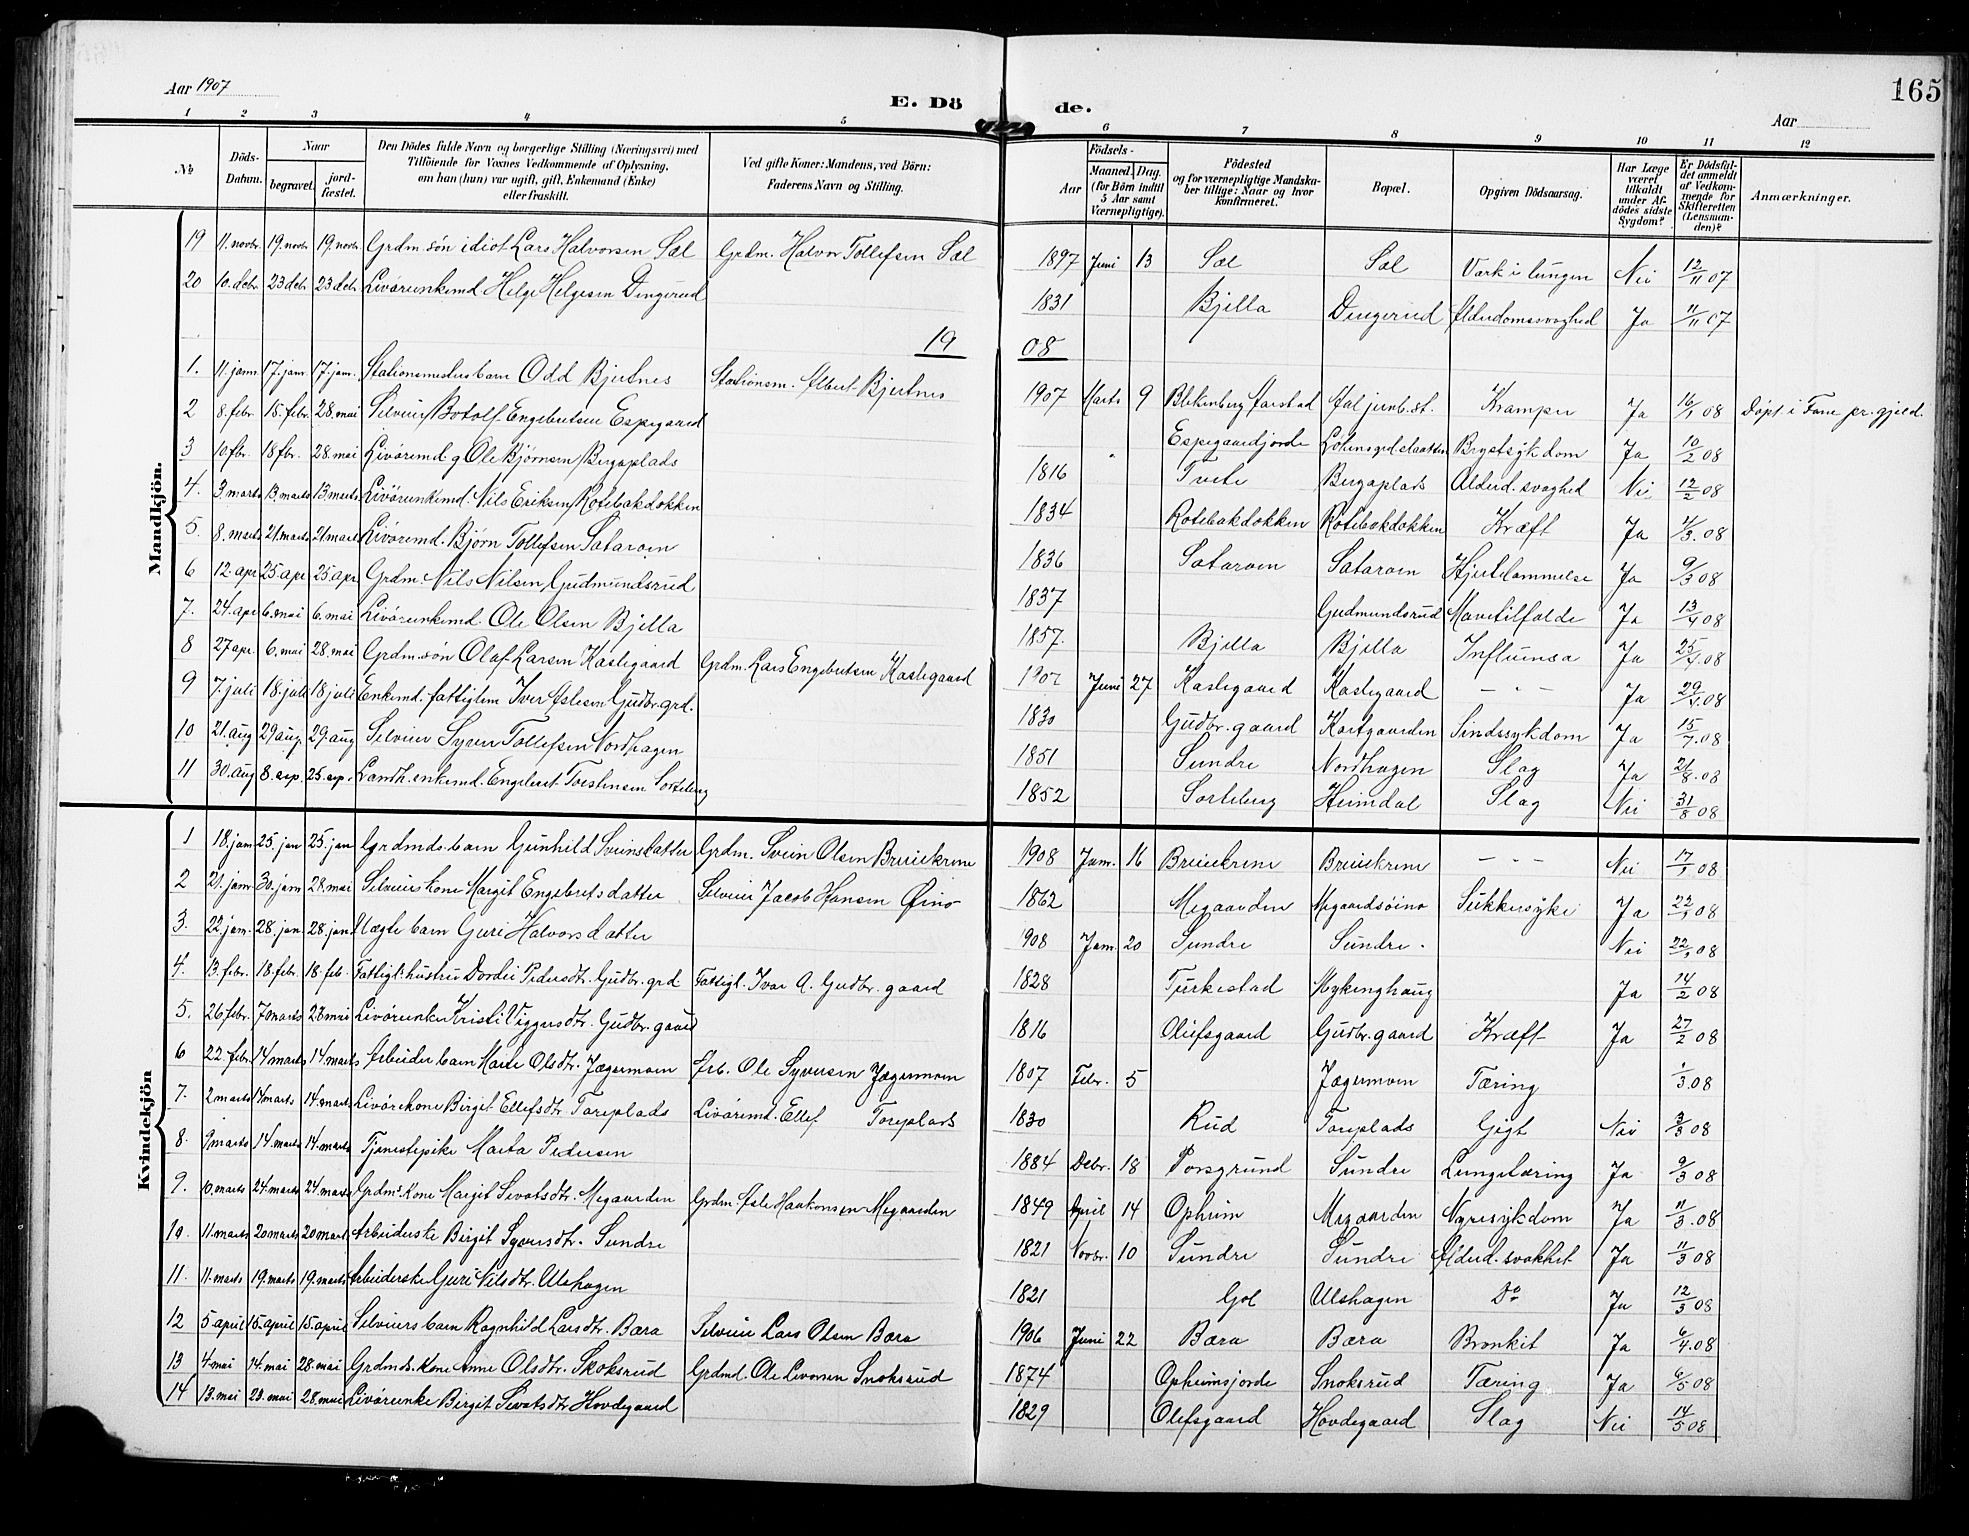 165
Aar 1907
E. Dö de.
Aar
1 2 3 4 5 6 7 8 9 10 11 12
No Döds-Datum. Naar begravet. jord-fæstet. Den Dödes fulde Navn og borgerlige Stilling (Næringsvei) med Tilföiende for Voxnes Vedkommende af Oplysning, om han (hun) var ugift, gift, Enkemand (Enke) eller fraskilt. Ved gifte Koner: Mandens, ved Börn: Faderens Navn og Stilling. Födsels- Aar Maaned. Dag. (for Börn indtil 5 Aar samt Værnepligtige). Födested og for værnepligtige Mandskaber tillige: Naar og hvor konfirmeret. Bopæl. Opgiven Dödsaarsag. Har Læge været tilkaldt under Afdödes sidste Sygdom? Er Dödsfaldet anmeldt af Vedkommende for Skifteretten (Lensmanden)? Anmærkninger.
Mandkjön.
19 11. novbr. 19. novbr. 19. novbr. Grdm. sön idiot Lars Halvorsen Sæl Grdm. Halvor Tollefsen Sæl 1897 Juni 13 Sæl Sæl Værk i lungen Nei 12/11 07
20 10. debr. 23 debr. 23 debr. Livörenkemd Helge Helgesen Dengerud 1831 Bjella Dengerud Alderdomssvaghed Ja 11/11 07
19 08
1. 11. janr. 17. janr. 17. janr. Stationsmesters barn Odd Bjertnes Stationsm. Albert Bjertnes 1907 Marts 9 Aal jernb.st. Kramper Ja 16/1 08 Döpt i Fane pr.gjeld.
2 8. febr. 15. febr. 28. mai Selveier Botolf Engebretsen Espegaard Espegaardjorde Brystsykdom Ja 10/2 08
3 10. fbr. 18 fbr. 28. mai Livöremd g Ole Björnsen Bergaplads 1816 Tvete Bergaplads Alderd. svaghed Nei 12/2 08
4. 3. marts 13. marts 13 marts Livörenkemd. Nils Eriksen Rotebakdokken 1834 Rotebakdokken Rotebakdokken Kræft Ja 4/3. 08
5. 8. marts 21. marts 21 marts Livöremd. Björn Tollefsen Sataroen 1836 Sataroen Sataroen Hjertelammelse Ja 9/3 08
6 12. apr 25. apr 25. apr Grdm. Nils Nilsen Gudmundsrud 1837 Gudmundsrud Mavetilfælde Ja 13/4 08
7. 24. apr 6. mai 6. mai Livörenkemd. Ole Olsen Bjella 1857. Bjella Bjella Influensa Ja 25/4. 08
8 27 apr. 6. mai 28. mai Grdm. sön Olaf Larsen Kaslegaard Grdm. Lars Engebretsen Kaslegaard 1907 Juni 27 Kaslegaard Kaslegaard — " — Ja 29/4. 08
9 7. juli 18. juli 18 juli Enkemd. fattiglem Iver Aslesen Gudbr.grd. 1830 Gudbr. gaard Kortgaarden Sindssykdom Ja 15/7. 08
10 21. aug 29 aug. 29. aug Selveier Syver Tollefsen Nordhagen 1851 Sundre Nordhagen Slag Ja 21/8. 08
11 30. aug 8. sep. 25. sep. Landh. enkemd. Engebret Torstensen Sorteberg 1852 Sorteberg Heimdal Slag Nei 31/8 08
Kvindekjön
1 18. jan 25. jan 25. jan Grdmds. barn Gunhild Sveinsdatter Grdm. Svein Olsen Breiekrene 1908 Jan. 16 Breiekrene Breiekrene — " — Nei 17/1 08
2 21. jan 30. jan 28. mai Selveiers kone Margit Engebretsdatter Selveier Jacob Hansen Öino 1862 Megaarden Megaardsöino Sukkersyke Ja 22/1 08
3. 22. jan. 28. jan 28. jan. Uægte barn Guri Halvorsdatter 908 Jan. 20 Sundre Sundre. Nei 22/1 08
4. 13. febr. 18. febr. 18 feb. Fattigl. hustru Dordei Pedersdt. Gudbr. grd Fattigl. Ivar A. Gudbr. gaard 1828 Turkestad Mykinghaug Ja 14/2 08
5. 26 febr. 7 marts 28 mai Livörenke Kristi Viggersdtr. Gudbr. gaard 1816 Olefsgaard Gudbr. gaard Kræft Ja 27/2 08
6 22. febr. 14 marts 14. marts Arbeider barn Marie Olsdtr. Jægermoen Arb. Ole Syversen Jægermoen 1807 Febr. 5 Jægermoen Tæring 1/3. 08
7. 2 marts 14 marts 14. marts Livörekone Birgit Ellefsdtr. Toreplads Livöremd. Ellef Toreplads 1830 Rud Toreplads Gigt Nei 3/3 08
8. 9 marts 14. marts 14. marts Tjenestepike Marta Pedersen 1884 Debr. 18 Porsgrund Sundre Lungetæring Ja 9/3 08
9. 10. marts 24. marts 24. marts Grdms kone Margit Sevatsdtr. Megaarden Grdm. Asle Haakonsen Megaarden 1849 April 14 Opheim Megaarden Nyresykdom Ja 11/3. 08
10. 11. marts 20 marts 20 mart Arbeiderske Birgit Syversdtr. Sundre 1821 Novbr. 10 Sundre Sundre Alderd. svakhet Ja 11/3 08
11. 11. marts 19. marts 19. marts Arbeiderske Guri Nilsdtr. Ulshagen 1821 Gol Ulshagen Do Ja 12/3 08
12 5 april 15. april 15. april Selveiers barn Ragnhild Larsdtr. Bæra Selveier Lars Olsen Bæra 1906 Juni 22 Bæra Bæra Bronkit Ja 6/4. 08
13 4. mai 14. mai 28. mai Grdmds. Kone Anne Olsdtr. Skoksrud Grdmd. Ole Levorsen Snoksrud 1874 Opheimsjorde Snoksrud Tæring Ja 6/5 08
14 13. mai 23. mai 28. mai Livörenke Birgit Sevatsdtr Hovdegaard 1829 Olefsgaard Hovdegaard Slag Nei 14/5 08